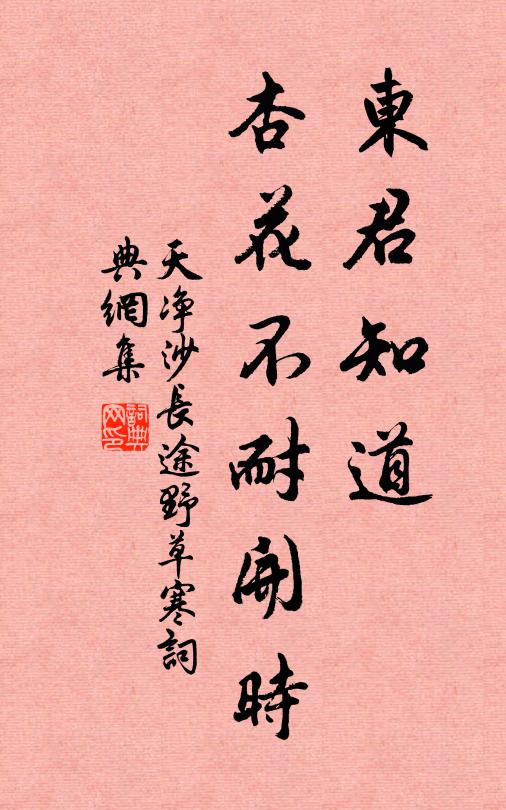 東君知道
杏花不耐開時
天净沙長途野草寒詞
典網集
詞典
网印